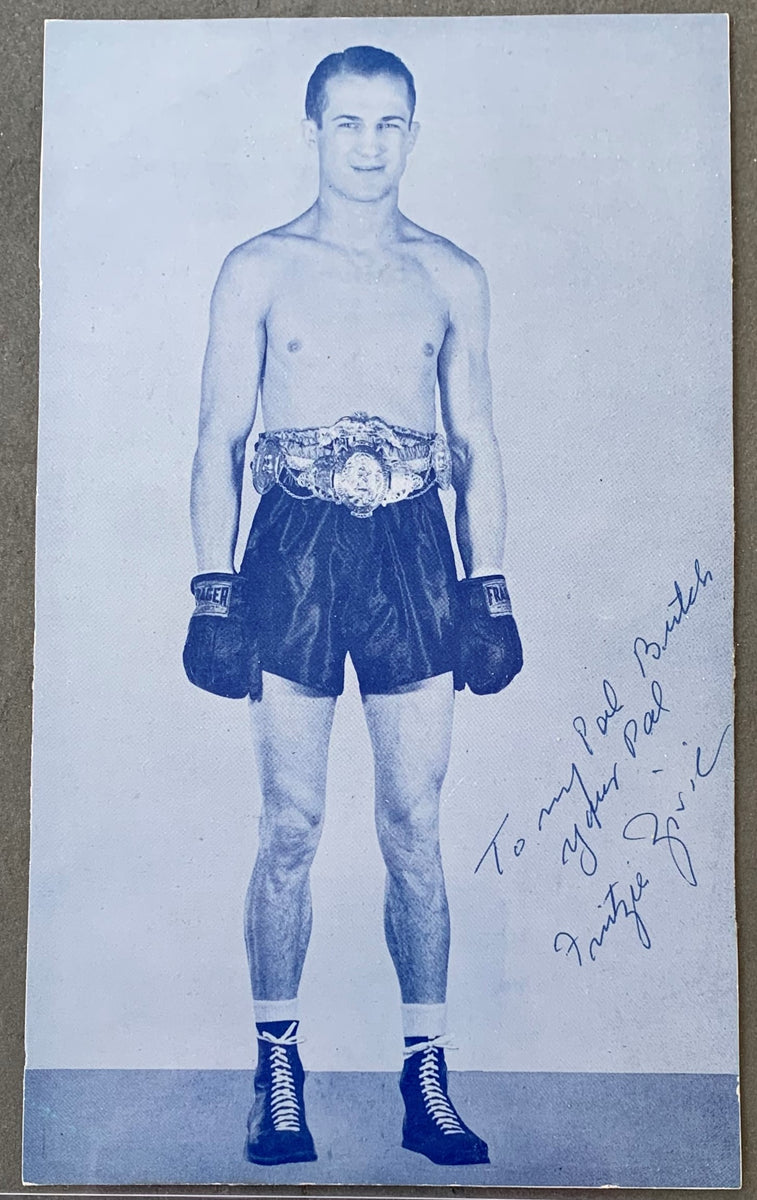 RAGER
FRA
To my Pal Butch
your Pal
Fritzie Zivic